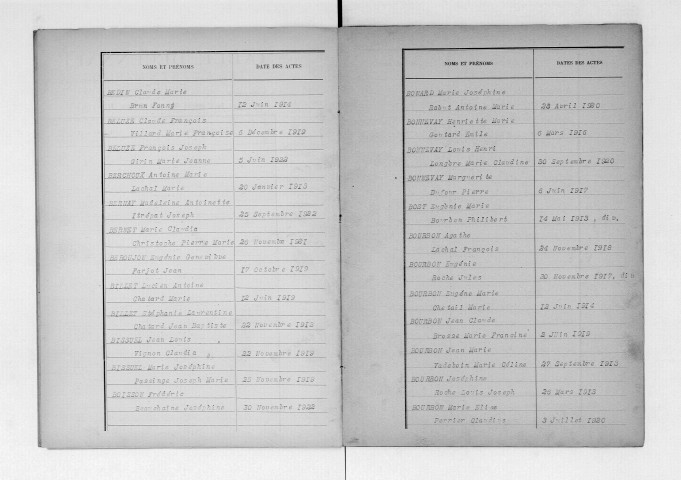 NOMS ET PRÉNOMS DATE DES ACTES
Claude Marie
Brun Fanny 12 Juin 1914
Claude François
Villard Marie Françoise 6 Décembre 1919
François Joseph
Marie Jeanne 5 Juin 1922
Antoine Marie
Lachal Marie 20 Janvier 1913
Madeleine Antoinette
Joseph 25 Septembre 1922
Marie Claudia
Christophe Pierre Marie 26 Novembre 1921
Eugénie
Jean 17 Octobre 1919
BILLET Lucien Antoine
Chatard Marie Juin 1919
BILLET Stéphanie Laurentine
Chatard Jean Baptiste 22 Novembre 1913
Jean Louis
Vignon Claudia 22 Novembre 1919
Marie Joséphine
Passinge Joseph Marie 29 Novembre 1919
BOISSON Frédéric
Joséphine 30 Novembre 1922
NOMS ET PRÉNOMS DATES DES ACTES
Marie Joséphine
Antoine Marie 23 Avril 1920
BONNEVAY Henriette Marie
Emile 6 Mars 1916
BONNEVAY Louis Henri
Marie Claudine 30 Septembre 1920
BONNEVAY Marguerite
Dufour Pierre 6 Juin 1917
Marie
Bourbon Philibert 14 Mai 1913, div.
BOURBON Agathe
Lachal François 24 Novembre 1918
BOURBON Eugénie
Roche Jules 30 Novembre 1917, div
BOURBON Eugène Marie
Marie 12 Juin 1914
BOURBON Jean Claude
Brosse Marie Francine 2 Juin 1919
BOURBON Jean Marie
Marie Céline 27 Septembre 1913
BOURBON Joséphine
Roche Louis Joseph 26 Mars 1913
BOURBON Marie Elise
Perrier Claudius 3 Juillet 1920